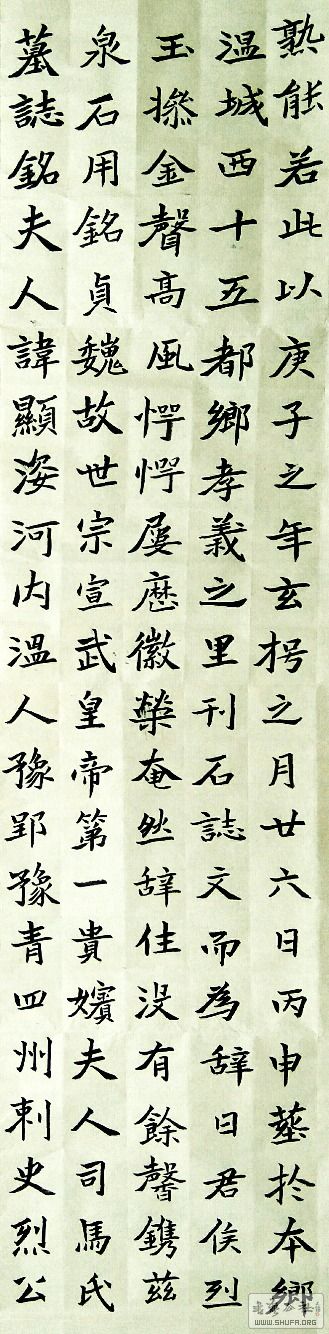 熟能若此以庚子之年玄枵之月廿六日丙申葬於本鄉
温城西十五都鄉孝義之里刊石誌文而為辞曰君侯烈
玉摻金聲高風愕愕屡歷徽榮奄然辞住没有餘馨鐫兹
泉石用銘貞魏故世宗宣武皇帝第一貴嬪夫人司馬氏
墓誌銘夫人諱顯姿河内温人豫郢豫青四州刺史烈公
WWW.SHUFA.ORG